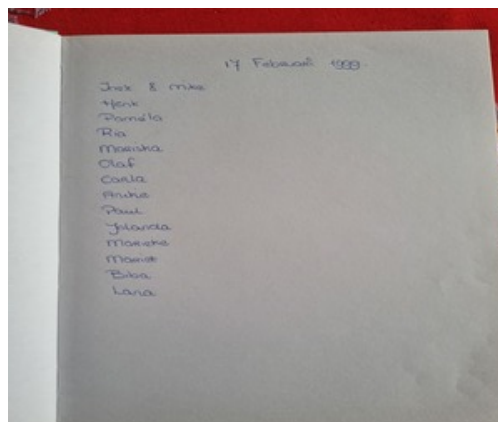 17 Februari 1999.
& Mike
Henk
Pamela
Ria
Mariska
Olaf
Carla
Paul
Jolanda
Marieke
Mariet
Biba
Lana